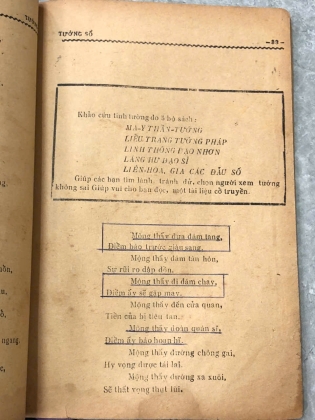 TƯỚNG SỐ
Khảo cứu tinh tường do 5 bộ sách:
MA-Y THẦN-TƯỚNG
LIỄU TRANG TƯỚNG PHÁP
LINH THÔNG ĐẠO NHƠN
LÃNG HƯ ĐẠO SĨ
LIÊN-HOA, GIA CÁC ĐẨU SỐ
Giúp các bạn tìm lành, tránh dữ, chọn người xem tướng
không sai Giúp vui cho bạn đọc, một tài liệu cổ truyền.
Mộng thấy đưa đám tang,
Điềm báo trước giàu sang.
Mộng thấy đám tân hôn,
Sự rủi ro dập dồn.
Mộng thấy đi đám cháy,
Điềm ấy sẽ gặp may.
Mộng thấy đến cửa quan,
Tiền của bị tiêu tan.
Mộng thấy đoàn quân sĩ,
Điềm ấy báo hoan hỉ.
Mộng thấy đường chông gai,
Hy vọng được tái lai.
Mộng thấy đường xa xuôi,
Sẽ thất vọng thụt lùi.